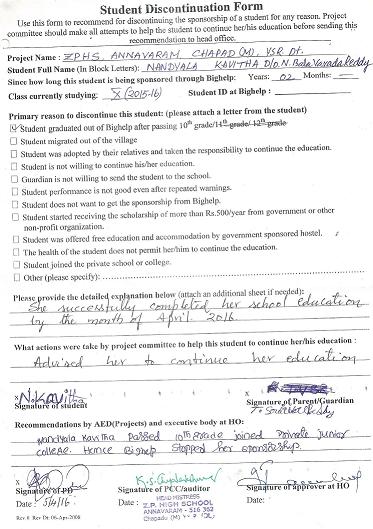 Student Discontinuation Form
Use this form to recommend for discontinuing the sponsorship of a student for any reason. Project
committee should make all attempts to help the student to continue her/his education before sending this
recommendation to head office.
Project Name : ZPHS, ANNAVARAM CHAPAD (M), YSR Dt.
Student Full Name (in Block Letters): NANDYALA KAVITHA D/o. N. Bala Varada Reddy
Since how long this student is being sponsored through Bighelp: Years: 02 Months: —
Class currently studying: X (2015-16) Student ID at Bighelp :
Primary reason to discontinue this student: (please attach a letter from the student)
Student graduated out of Bighelp after passing 10th grade/11th grade/ 12th grade
Student migrated out of the village
Student was adopted by their relatives and taken the responsibility to continue the education.
Student is not willing to continue his/her education.
Guardian is not willing to send the student to the school.
Student performance is not good even after repeated warnings.
Student does not want to get the sponsorship from Bighelp.
Student started receiving the scholarship of more than Rs.500/year from government or other
non-profit organization.
Student was offered free education and accommodation by government sponsored hostel.
The health of the student does not permit her/him to continue the education.
Student joined the private school or college.
Other (please specify):
Please provide the detailed explanation below (attach an additional sheet if needed):
She successfully completed her school education
by the month of April 2016.
What actions were take by project committee to help this student to continue her/his education :
Advised her to continue her education
x N.Kavitha x
Signature of student Signature of Parent/Guardian
Recommendations by AED(Projects) and executive body at HO:
Nandyala Kavitha Passed 10th grade joined Private junior
college. Hence Bighelp stopped her sponsorship.
Signature of PD Signature of PCC/auditor Signature of approver at HO
Date : 5/4/16 Date : Date :
HEAD MISTRESS
Z.P. HIGH SCHOOL
ANNAVARAM - 516 362
Rev. 0 Rev Dt: 06-Apr-2006